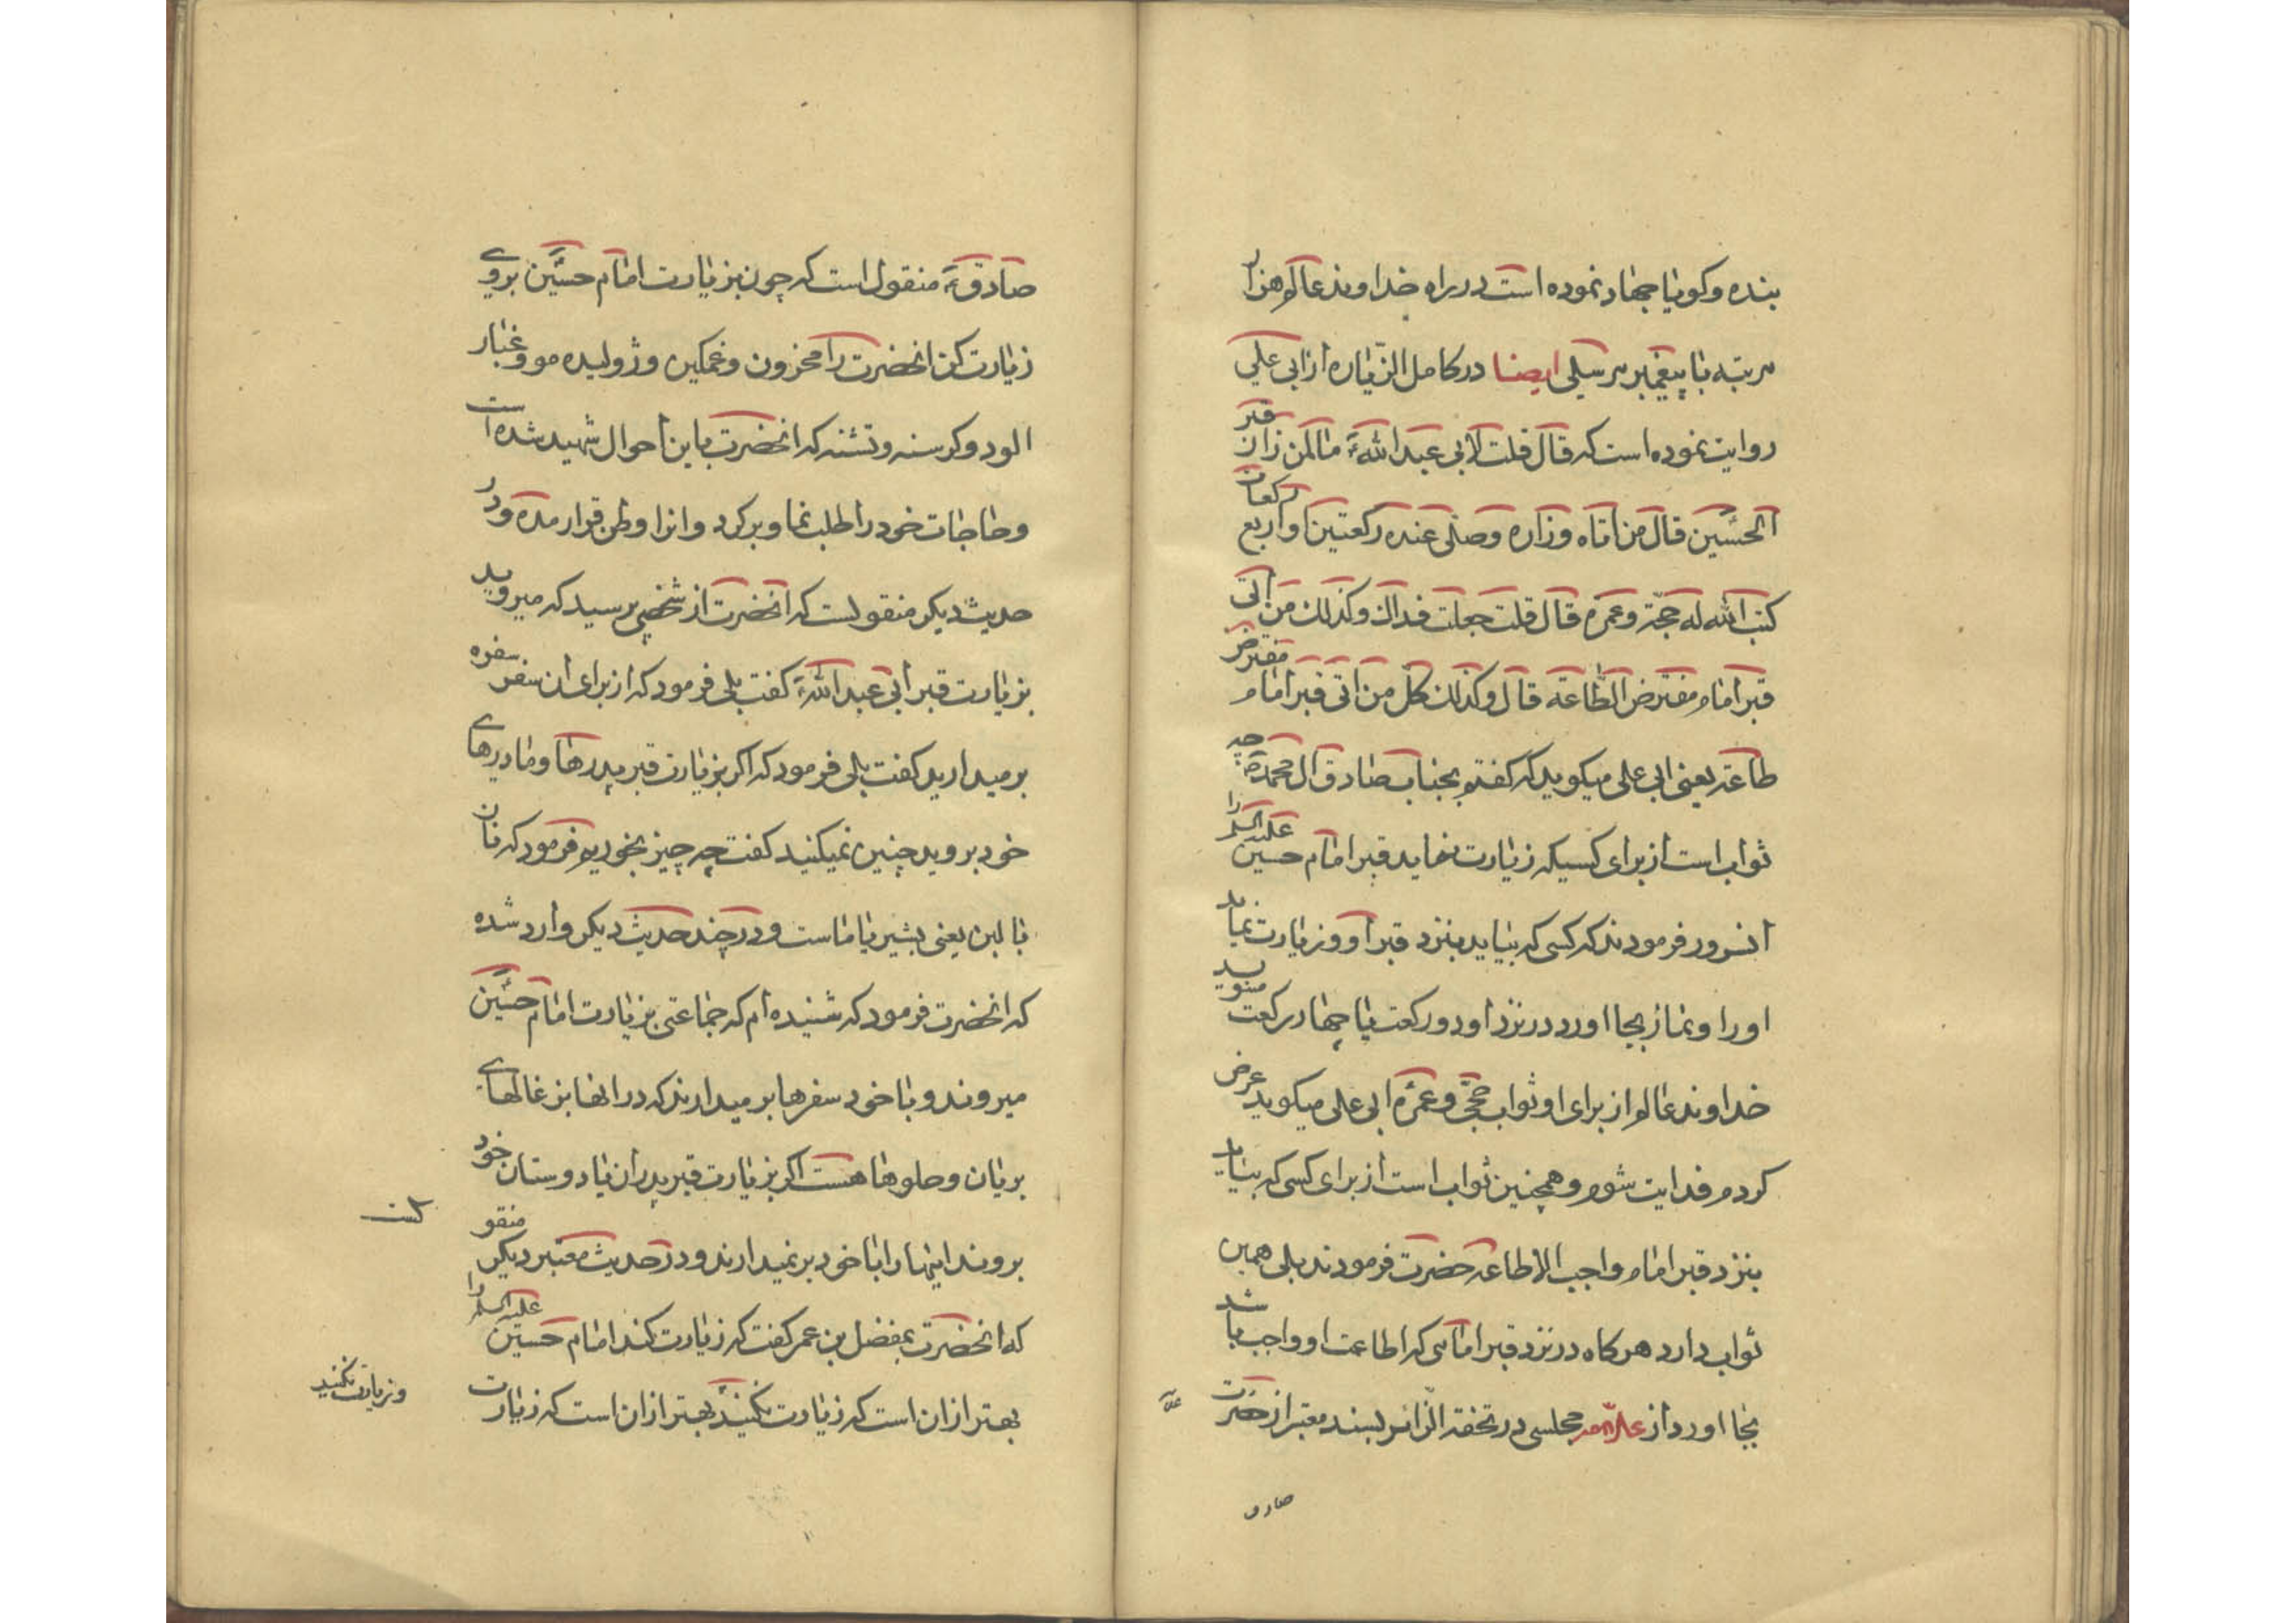 بنده و کویا جهاد نموده است در راه خداوند عالم هزار
مرتبه با پیغمبر مرسلی ایضا در کامل الزیاره از ابی علی
روایت نموده است که قال قلت لابی عبد الله ع ما لمن زار قبر
الحسین قال من اتاه و زاره و صلی عنده رکعتین او اربع رکعات
کتب الله له حجة و عمره قال قلت جعلت فداک و کذلک من اتی
قبر امام مفترض الطاعة قال و کذلک کل من اتی قبر امام مفترض
طاعته یعنی ابی علی میکوید که کفتم بجناب صادق ال محمد ص چه
ثواب است از برای کسیکه زیارت نماید قبر امام حسین علیه السلام را
انسرور فرمودند که کسی که بیاید بنزد قبر او و زیارت نماید
او را و نماز بجا اورد در نزد او دو رکعت یا چهار رکعت مینوید
خداوند عالم از برای او ثواب حجی و عمره ابی علی میکوید عرض
کردم فدایت شوم و همچنین ثواب است از برای کسی که بیاید
بنزد قبر امام واجب الاطاعه حضرت فرمودند بلی همین
ثواب دارد هرکاه در نزد قبر امامی که اطاعت او واجب باشد
بجا اورد از علامه مجلسی در تحفة الزائر بسند معتبر از حضرت
صادق
صادق ع منقول است که چون بزیارت امام حسین بروی
زیارت کن انحضرت را محزون و غمکین و ژولیده مو و غبار
الود و کرسنه و تشنه که انحضرت باین احوال شهید شده است
و حاجات خود را طلب نما و برکرد و انرا وطن قرار مده و در
حدیث دیکر منقولست که انحضرت از شخصی پرسید که میروید
بزیارت قبر ابی عبد الله ع کفت بلی فرمود که از برای ان سفر سفره
بر میدارید کفت بلی فرمود که اکر بزیارت قبر پدرها و مادرهای
خود بروید چنین نمیکنید کفت چه چیز بخوریم فرمود که نان
با لبن یعنی بشیر یا ماست و در چند حدیث دیکر وارد شده
که انحضرت فرمود که شنیده ام که جماعتی بزیارت امام حسین
میروند و با خود سفرها بر میدارند که در انها بزغالهای
بریان و حلوها هست اکر بزیارت قبر پدران یا دوستان خود
بروند اینها را با خود بر نمیدارند و در حدیث معتبر دیکر منقو
لست
که انحضرت بمفضل بن عمر کفت که زیارت کند امام حسین علیه السلام را
بهتر از ان است که زیارت نکنید بهتر از ان است که زیارت
و زیارت نکنید